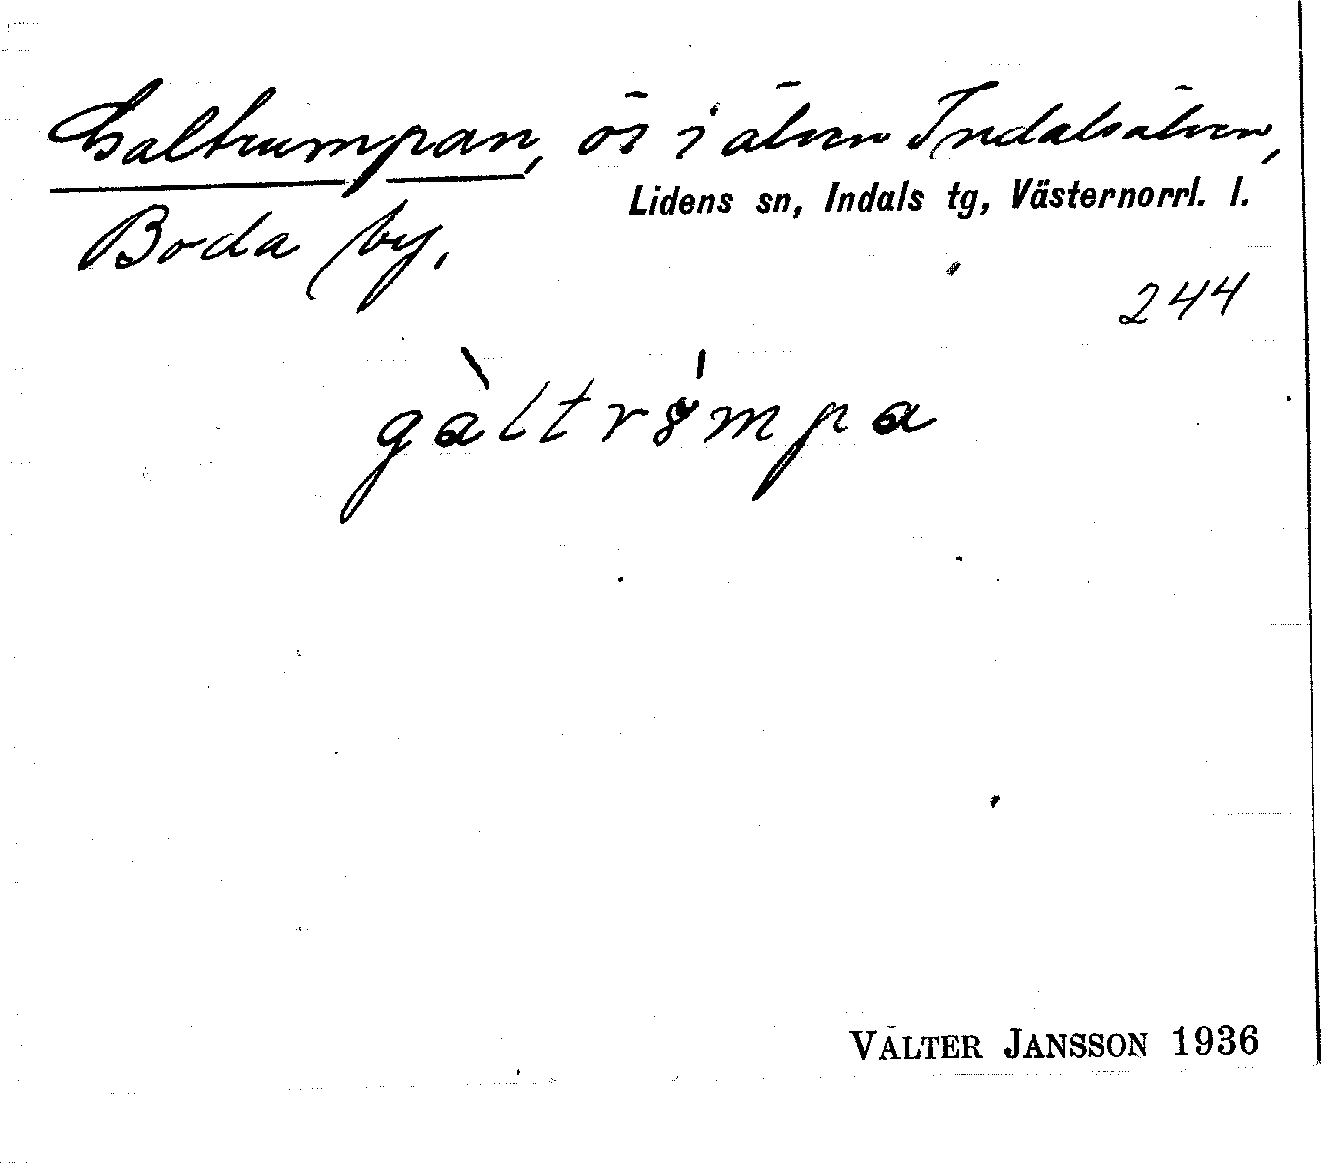 Galtrumpan, ör i älven Indalsälven,
Lidens sn, Indals tg, Västernorrl. l.
Boda by.
244
gàltrømpa
VALTER JANSSON 1936